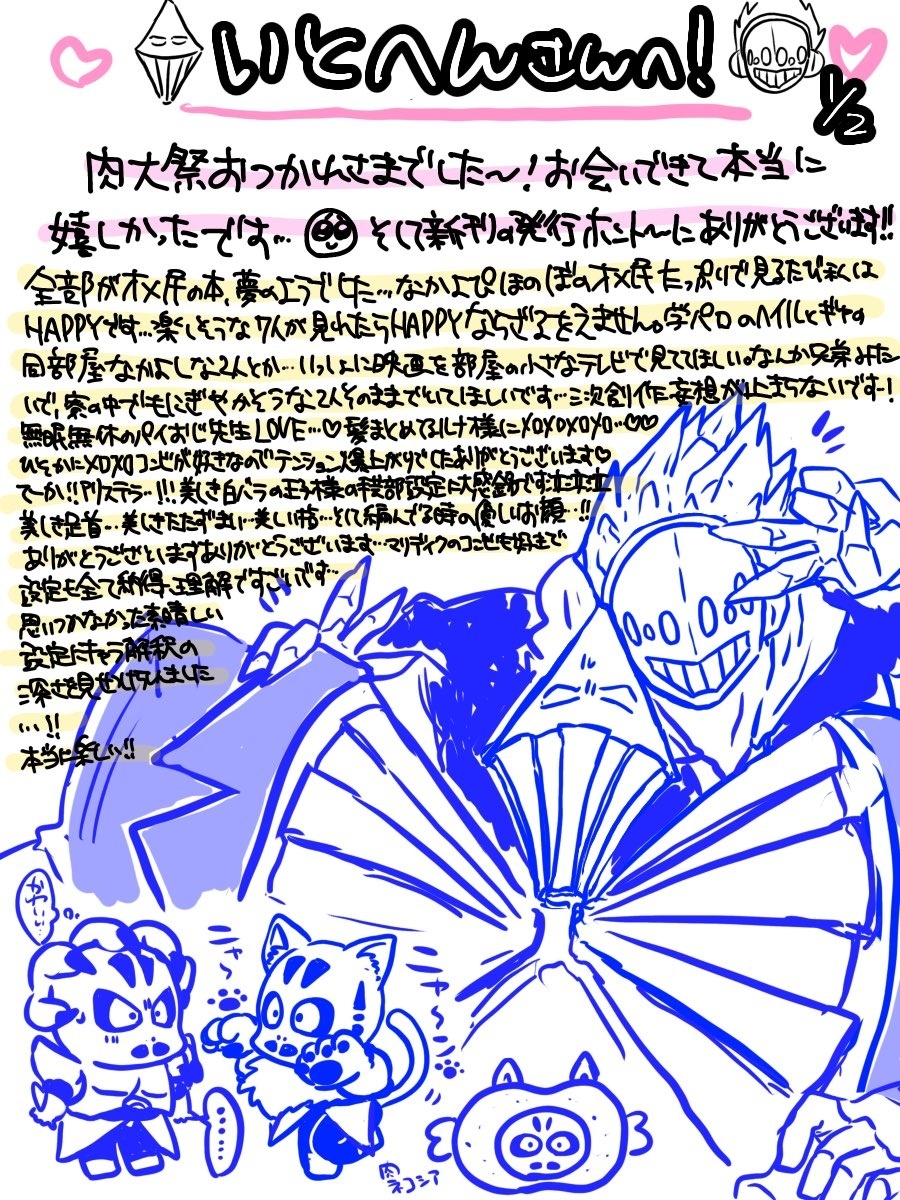 いとへんさんへ!
1/2
肉大祭おつかれさまでした〜!お会いできて本当に
嬉しかったです… そして新刊の発行ホント〜にありがとうございます!!
全部がオメ民の本、夢のようでした…なかよぴほのぼのオメ民たっぷりで見るたび私は
HAPPYです…楽しそうな7人が見れたらHAPPYならざるをえません。学パロのヘイルとギヤの
同部屋なかよしな2人とか…いっしょに映画を部屋の小さなテレビで見ててほしい。なんか兄弟みた
いで、寮の中でもにぎやかそうな2人そのままでいてほしいです…三次創作妄想が止まらないです!
無眠無休のパイおじ先生LOVE…♡髪まとめてるルナ様にメロメロメロ…♡♡
ひそかにメロメロコンビが好きなのでテンション爆上がりでしたありがとうございます♡
てーか!!アリステラ…!!!美しき白バラの王子様の手芸部設定に大感謝です
美しき足首…美しきたたずまい…美しい指…そして編んでる時の優しいお顔…!!
ありがとうございますありがとうございます…マリディクのコンビも好きで
設定も全て納得、理解ですごいです…
思いつかなかった素晴しい
設定にキャラ解釈の
深さを見せつけられました
…!!
本当に楽しい!!
かわいい…
ニャ〜
ニャ〜
肉
ネコシア